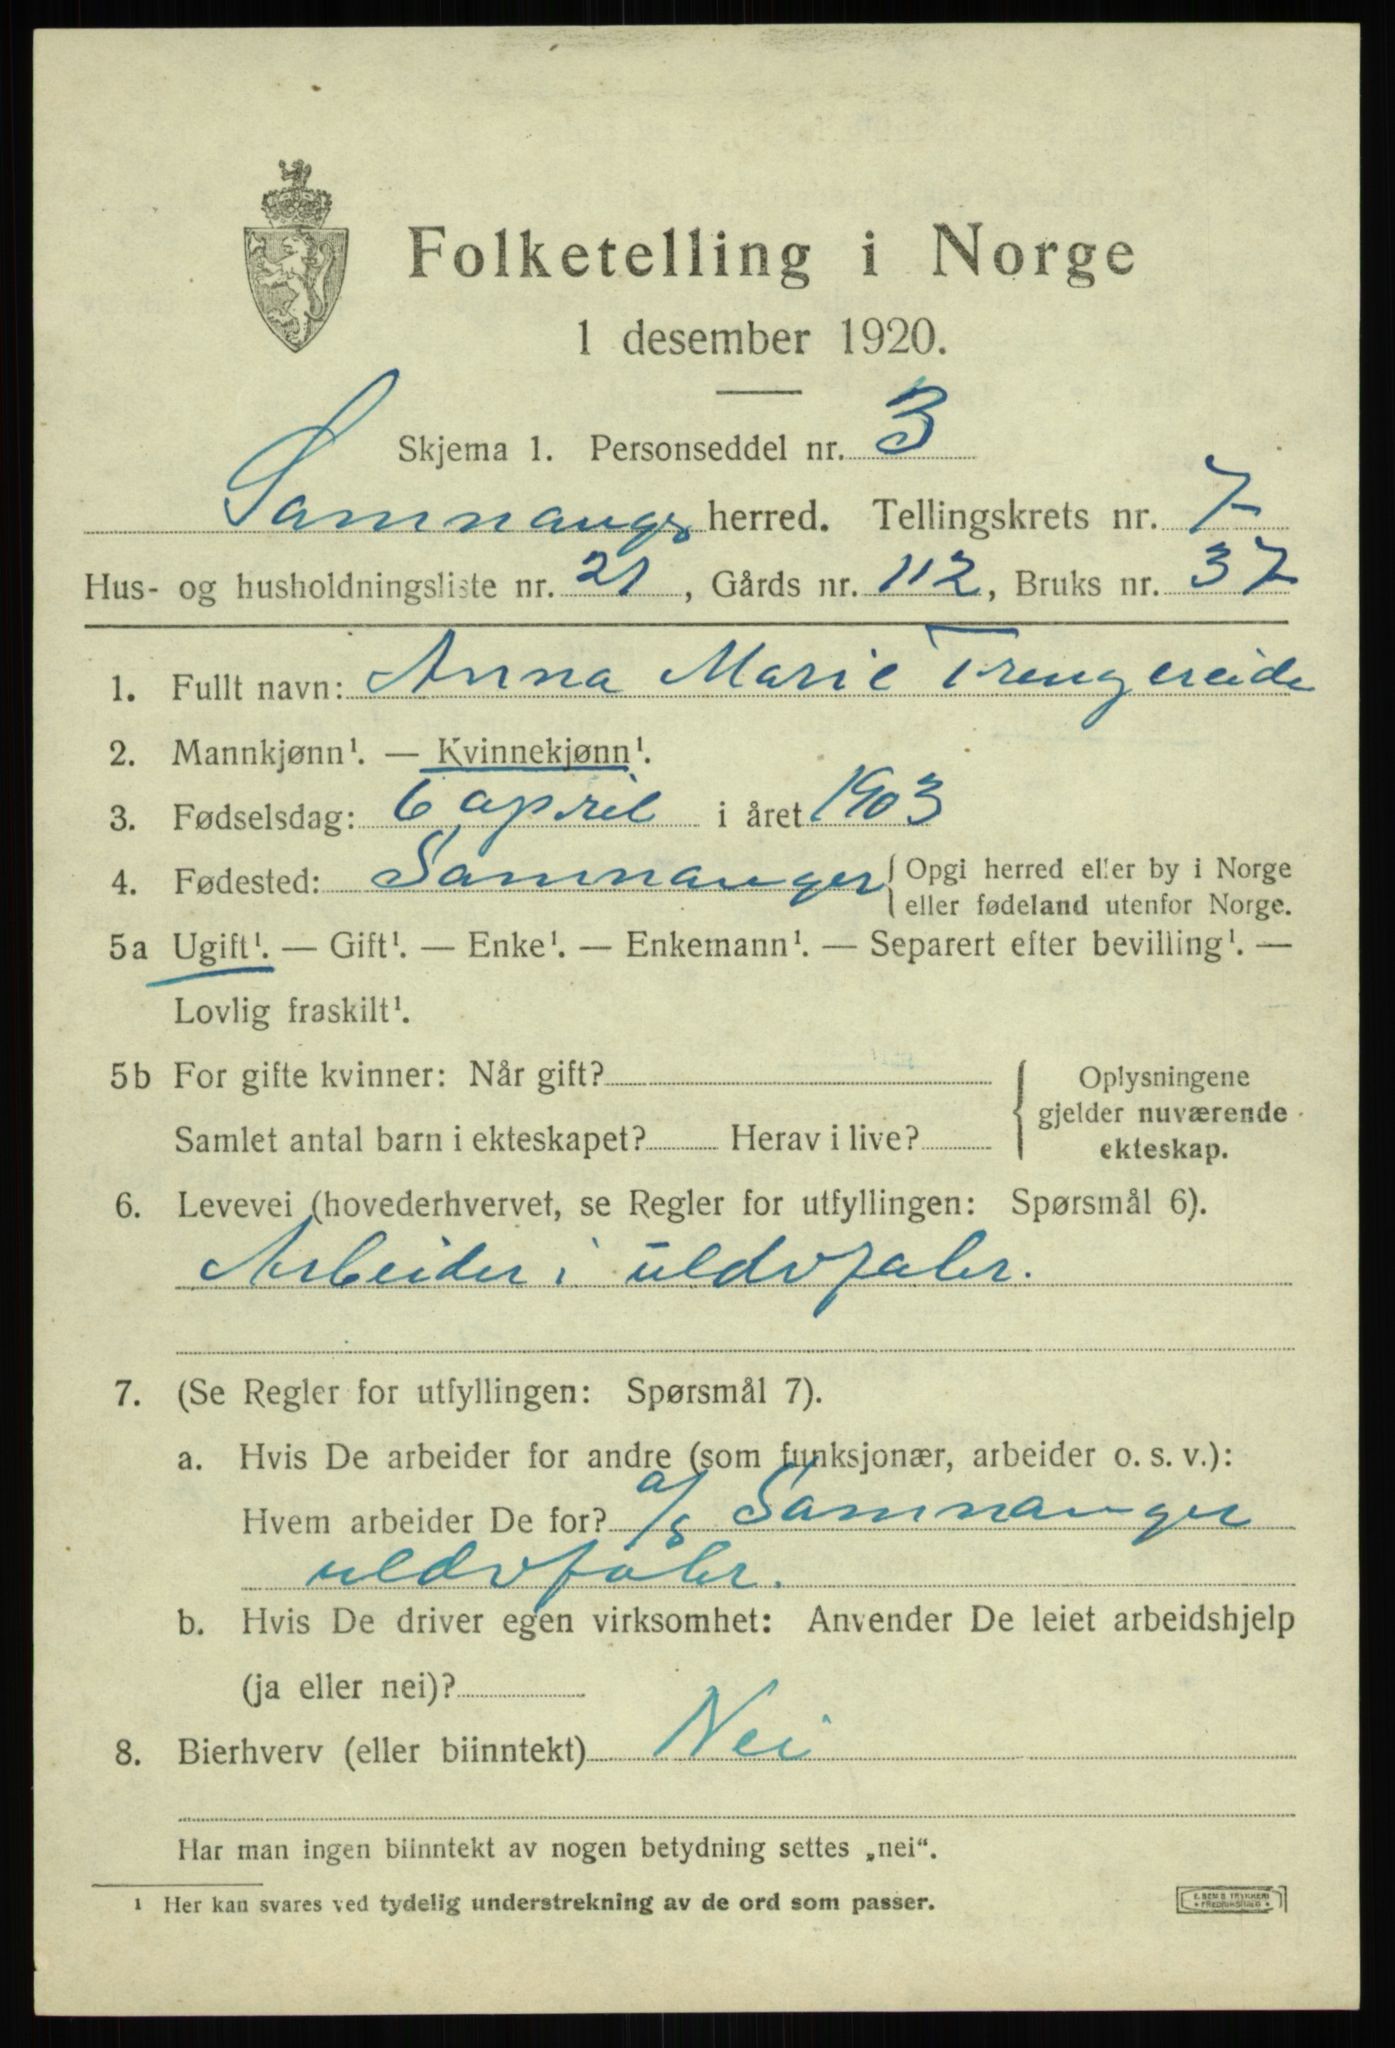 Folketelling i Norge
1 desember 1920.
Skjema 1. Personseddel nr. 3
Samnanger herred. Tellingskrets nr. 7
Hus- og husholdningsliste nr. 21, Gårds nr. 112, Bruks nr. 37
1. Fullt navn: Anna Marie Trengereide
2. Mannkjønn¹. — Kvinnekjønn¹.
3. Fødselsdag: 6 april i året 1903
4. Fødested: Samnanger { Opgi herred eller by i Norge
eller fødeland utenfor Norge.
5a Ugift¹. — Gift¹. — Enke¹. — Enkemann¹. — Separert efter bevilling¹. —
Lovlig fraskilt¹.
5b For gifte kvinner: Når gift? { Oplysningene
gjelder nuværende
Samlet antal barn i ekteskapet? Herav i live? ekteskap.
6. Levevei (hovederhvervet, se Regler for utfyllingen: Spørsmål 6).
Arbeider i uldvfabr.
7. (Se Regler for utfyllingen: Spørsmål 7).
a. Hvis De arbeider for andre (som funksjonær, arbeider o. s. v.):
Hvem arbeider De for? a/s Samnanger
uldvfabr.
b. Hvis De driver egen virksomhet: Anvender De leiet arbeidshjelp
(ja eller nei)?
8. Bierhverv (eller biinntekt) Nei
Har man ingen biinntekt av nogen betydning settes „nei“.
¹ Her kan svares ved tydelig understrekning av de ord som passer.